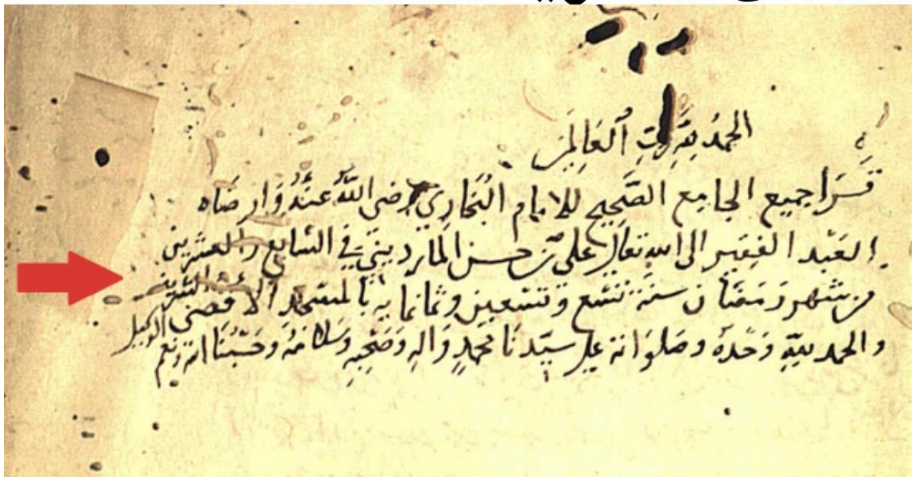 الحمد لله رب العالمين
قرا جميع الجامع الصحيح للامام البخاري رضي الله عنه وارضاه
العبد الفقير الى الله تعالى علي بن حسن المارديني في السابع والعشرين
من شهر رمضان سنة تسع وتسعين وثمانمايه بالمسجد الاقصى الشريف
والحمد لله وحده وصلواته على سيدنا محمد واله وصحبه وسلامه وحسبنا الله ونعم الوكيل